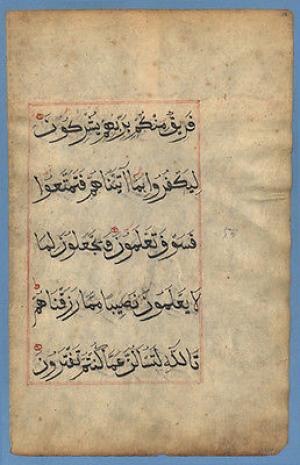 فَرِيقٌ مِنْكُمْ بِرَبِّهِمْ يُشْرِكُونَ
لِيَكْفُرُوا بِمَا آتَيْنَاهُمْ فَتَمَتَّعُوا
فَسَوْفَ تَعْلَمُونَ وَيَجْعَلُونَ لِمَا
لَا يَعْلَمُونَ نَصِيبًا مِمَّا رَزَقْنَاهُمْ
تَاللَّهِ لَتُسْأَلُنَّ عَمَّا كُنْتُمْ تَفْتَرُونَ